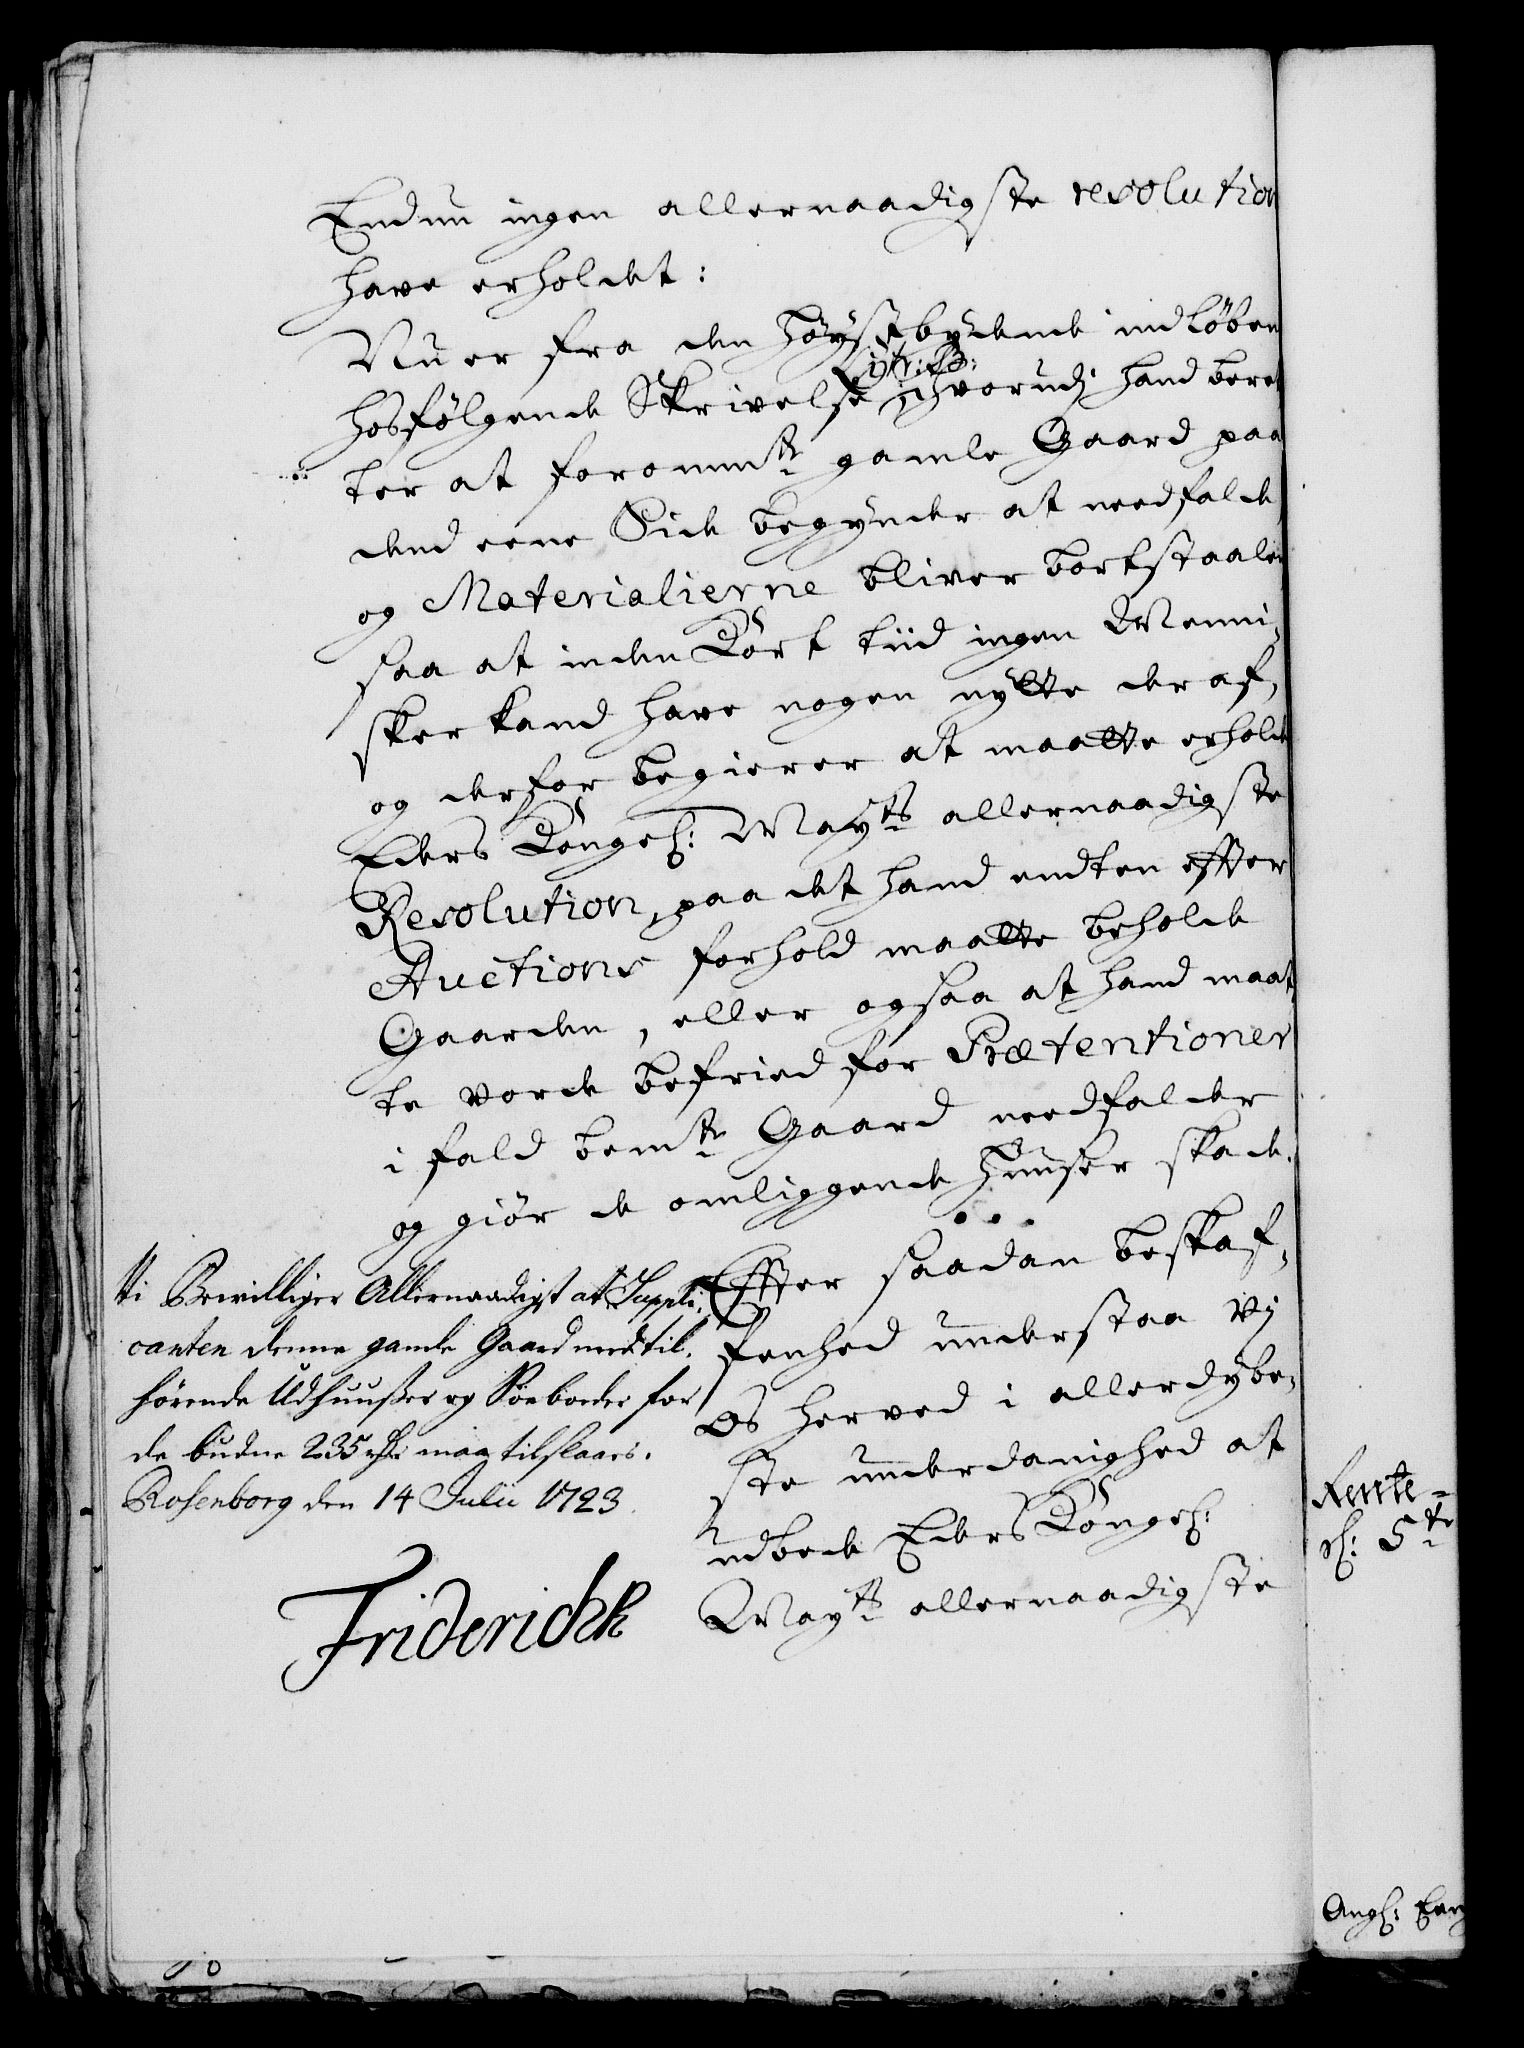 Endnu ingen allernaadigste resolution
have erholdet:
Nu er fra den Høystbydende indløben
hosfølgende Skrivelse hvorudj hand beret
Litr: B:
ter at forommte gamle Gaard paa
dend eene Side begynder at needfalde
og Materialierne bliver bortstaalen
saa at inden Kort tiid ingen Menni-
sker kand have nogen nytte deraf,
og derfor begierer at maatte erholde
Eders Kongel: Mayts allernaadigste
Resolution, paa det hand endten efter
Auctions forhold maatte beholde
Gaarden, eller ogsaa at hand maat-
te vorde befried for Prætentioner
i fald bemte Gaard needfalder
og giør de omliggende Huuser skade.
Efter saadan beskaf-
fenhed understaa Vj
Os herved i allerdybe-
ste underdanighed at
udbede Eders Kongel:
Mayts allernaadigste
Vi Bevilliger Allernaadigst at Suppli-
canten denne gamle Gaard med til-
hørende Udhuußer og Søeboder for
de budne 235 rdr maa tilslaaes.
Rosenborg den 14 Julii 1723.
Friderich R
Rente-
d: 5te
Angl: